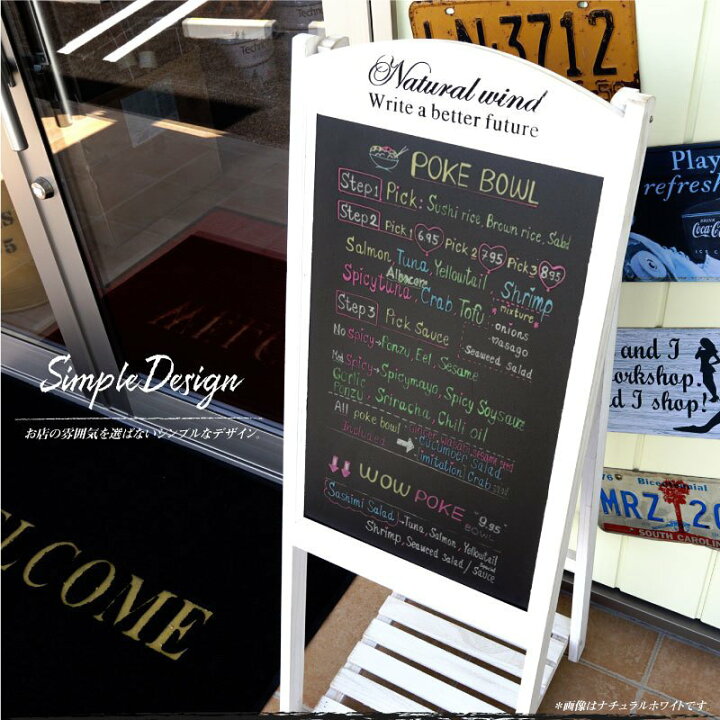 Natural wind
Write a better future
POKE BOWL
Step1 Pick: Sushi rice, Brown rice, Salad
Step2 Pick1 6.95 Pick2 7.95 Pick3 8.95
Salmon, Tuna, Yellowtail Shrimp
Albacore
Spicytuna, Crab, Tofu
*mixture*
onions
masago
Seaweed Salad
Step3 Pick Sauce
No Spicy→Ponzu, Eel, Sesame
Spicy→Spicymayo, Spicy Soysauce
Garlic Ponzu, Sriracha, Chili oil
All poke bowl Included → Ginger, Wasabi, Sesame seed
Cucumber Salad
imitation Crab
WOW POKE BOWL "9.95"
Sashimi Salad→Tuna, Salmon, Yellowtail
Shrimp, Seaweed Salad / Special Sauce
Simple Design
お店の雰囲気を選ばないシンプルなデザイン。
WELCOME
LN-3712
Play
refreshed
DRINK
Coca-Cola
ICE
and I
workshop.
nd I shop!
76 Bicentennial
MRZ 20
SOUTH CAROLIN
＊画像はナチュラルホワイトです